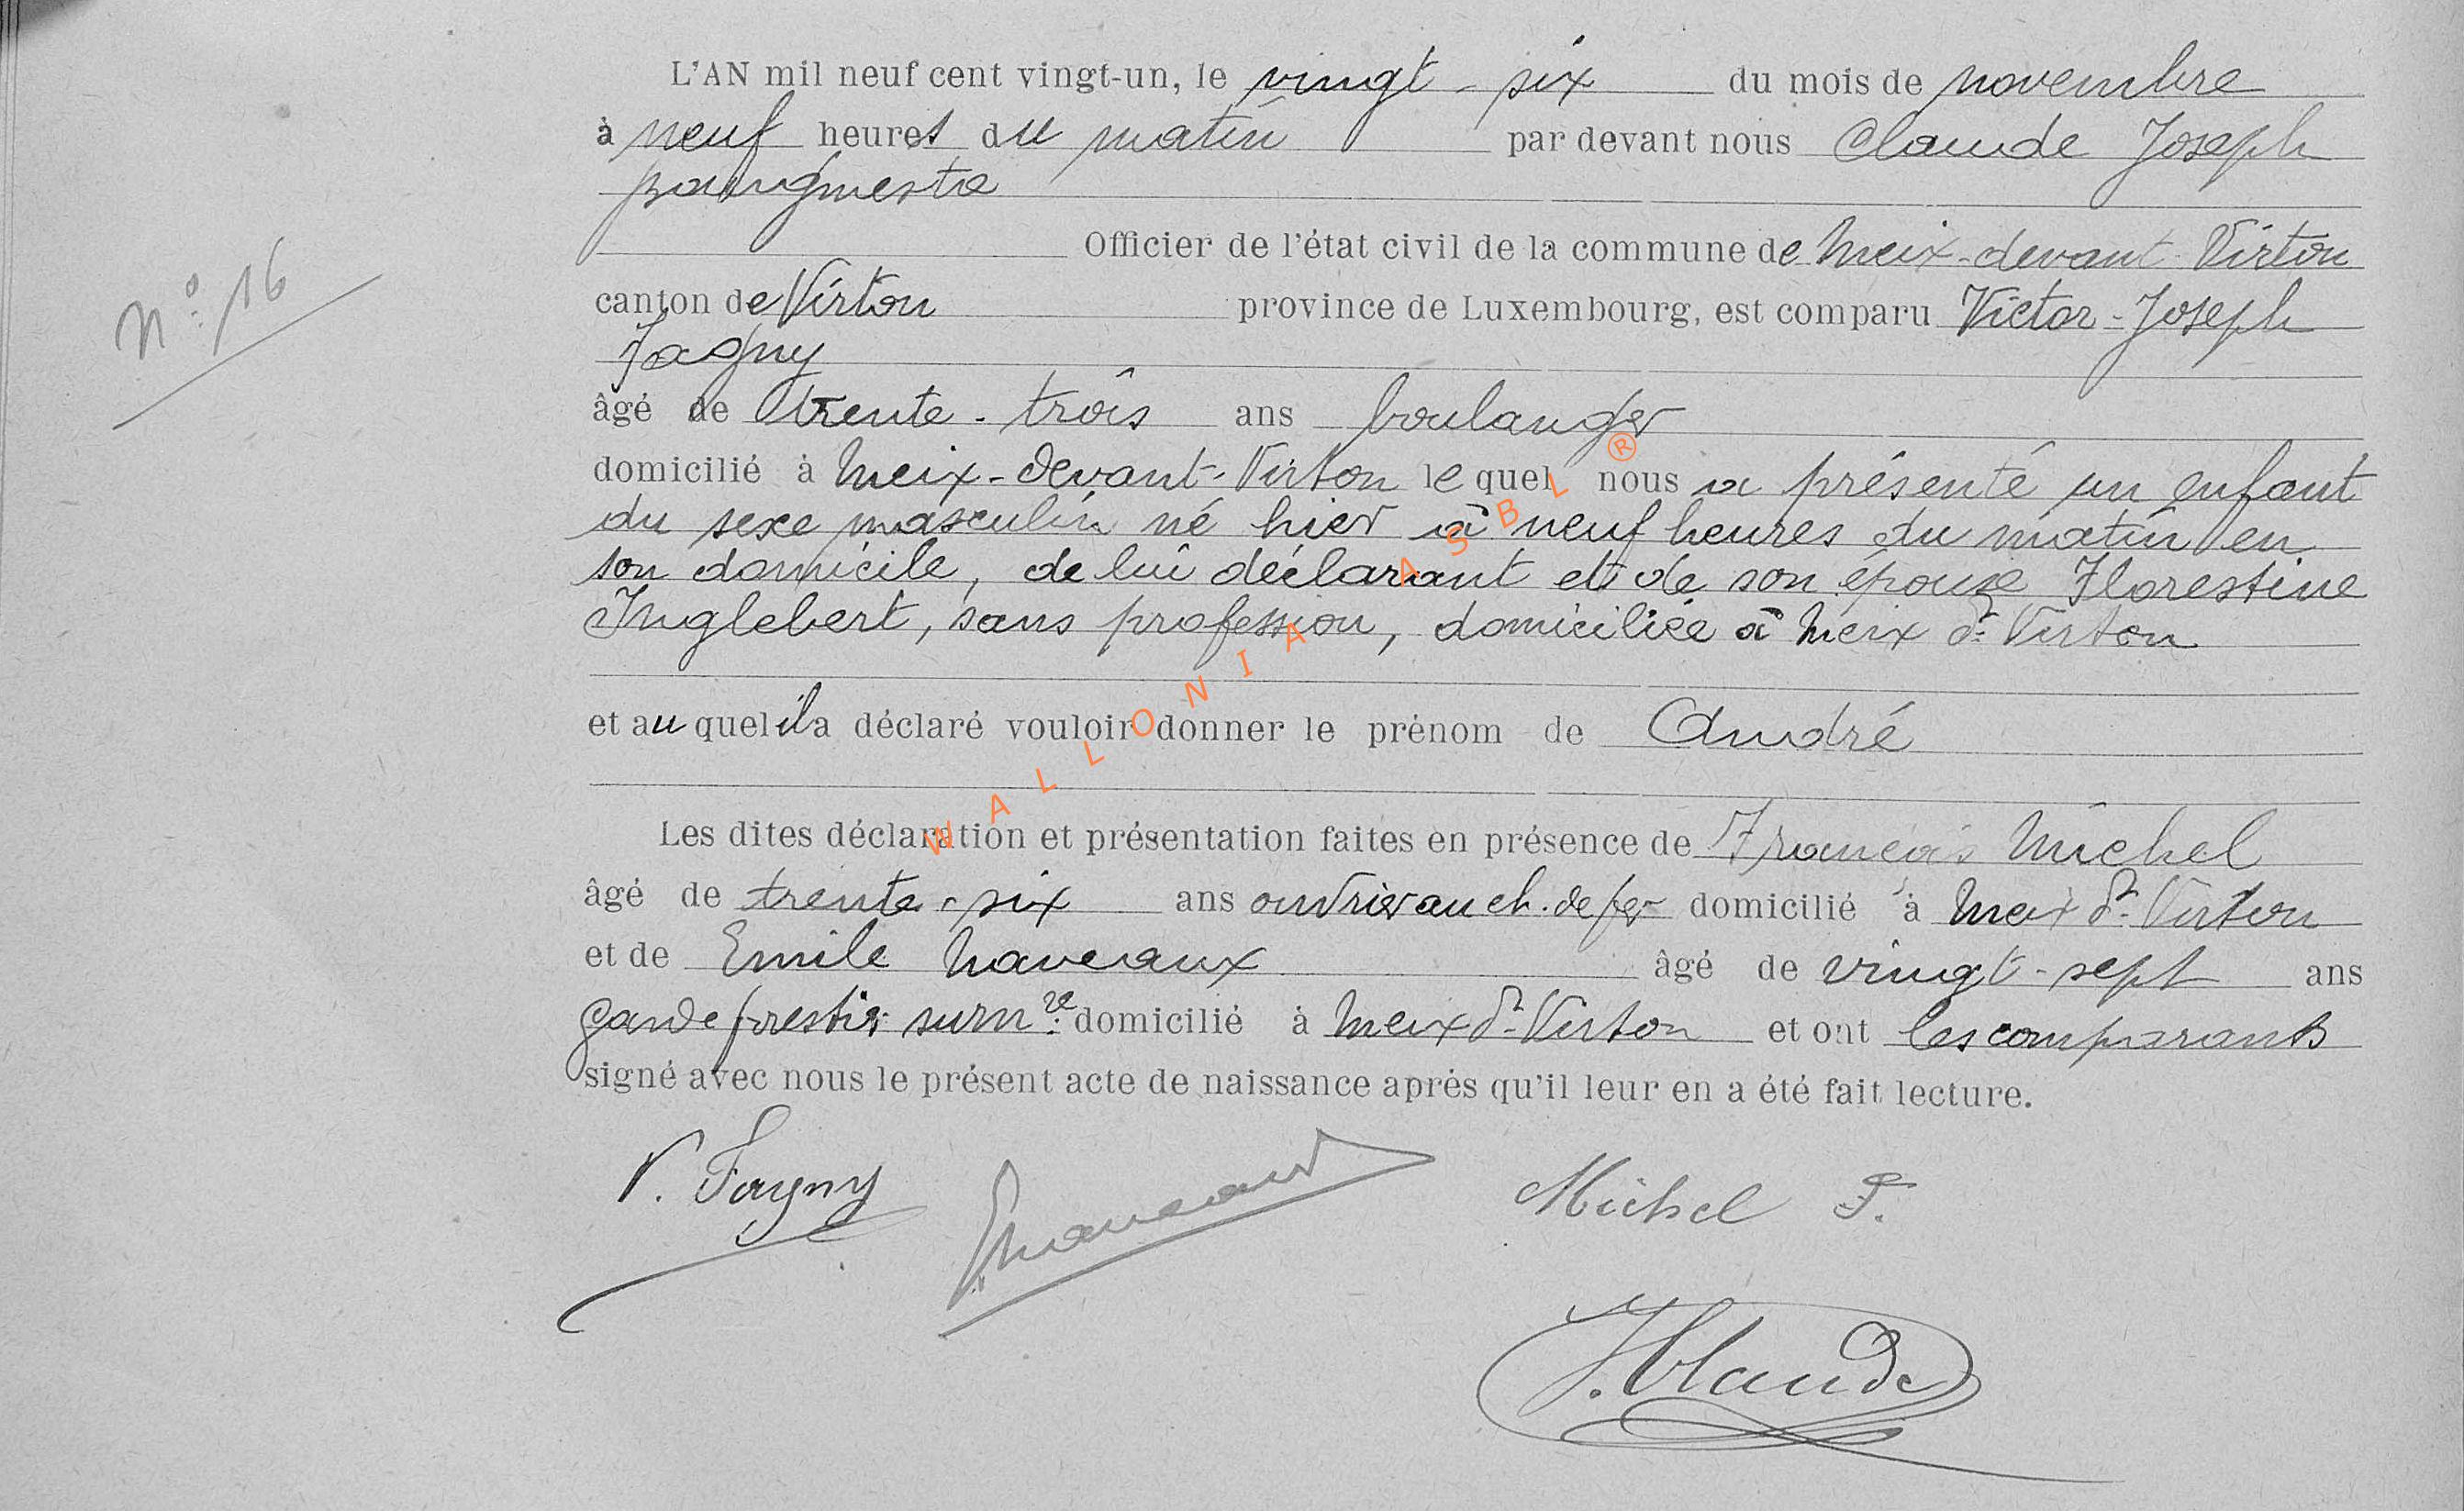 L'AN mil neuf cent vingt-un, le vingt-six du mois de novembre
à neuf heures du matin par devant nous Claude Joseph
bourgmestre
Officier de l'état civil de la commune de Meix-devant-Virton
N°: 16
canton de Virton province de Luxembourg, est comparu Victor-Joseph
Fagny
âgé de trente-trois ans boulanger
domicilié à Meix-devant-Virton lequel nous a présenté un enfant
du sexe masculin né hier à neuf heures du matin en
son domicile, de lui déclarant et de son épouse Florestine
Inglebert, sans profession, domiciliée à Meix dt Virton
et auquel il a déclaré vouloir donner le prénom de André
Les dites déclaration et présentation faites en présence de François Michel
âgé de trente-six ans ouvrier au ch. de fer domicilié à Meix dt Virton
et de Emile Naveaux âgé de vingt-sept ans
garde forestier surnre domicilié à Meix dt Virton et ont les comparants
signé avec nous le présent acte de naissance après qu'il leur en a été fait lecture.
V. Fagny
ENaveaux
Michel F.
J. Claude
WALLONIA ASBL ®